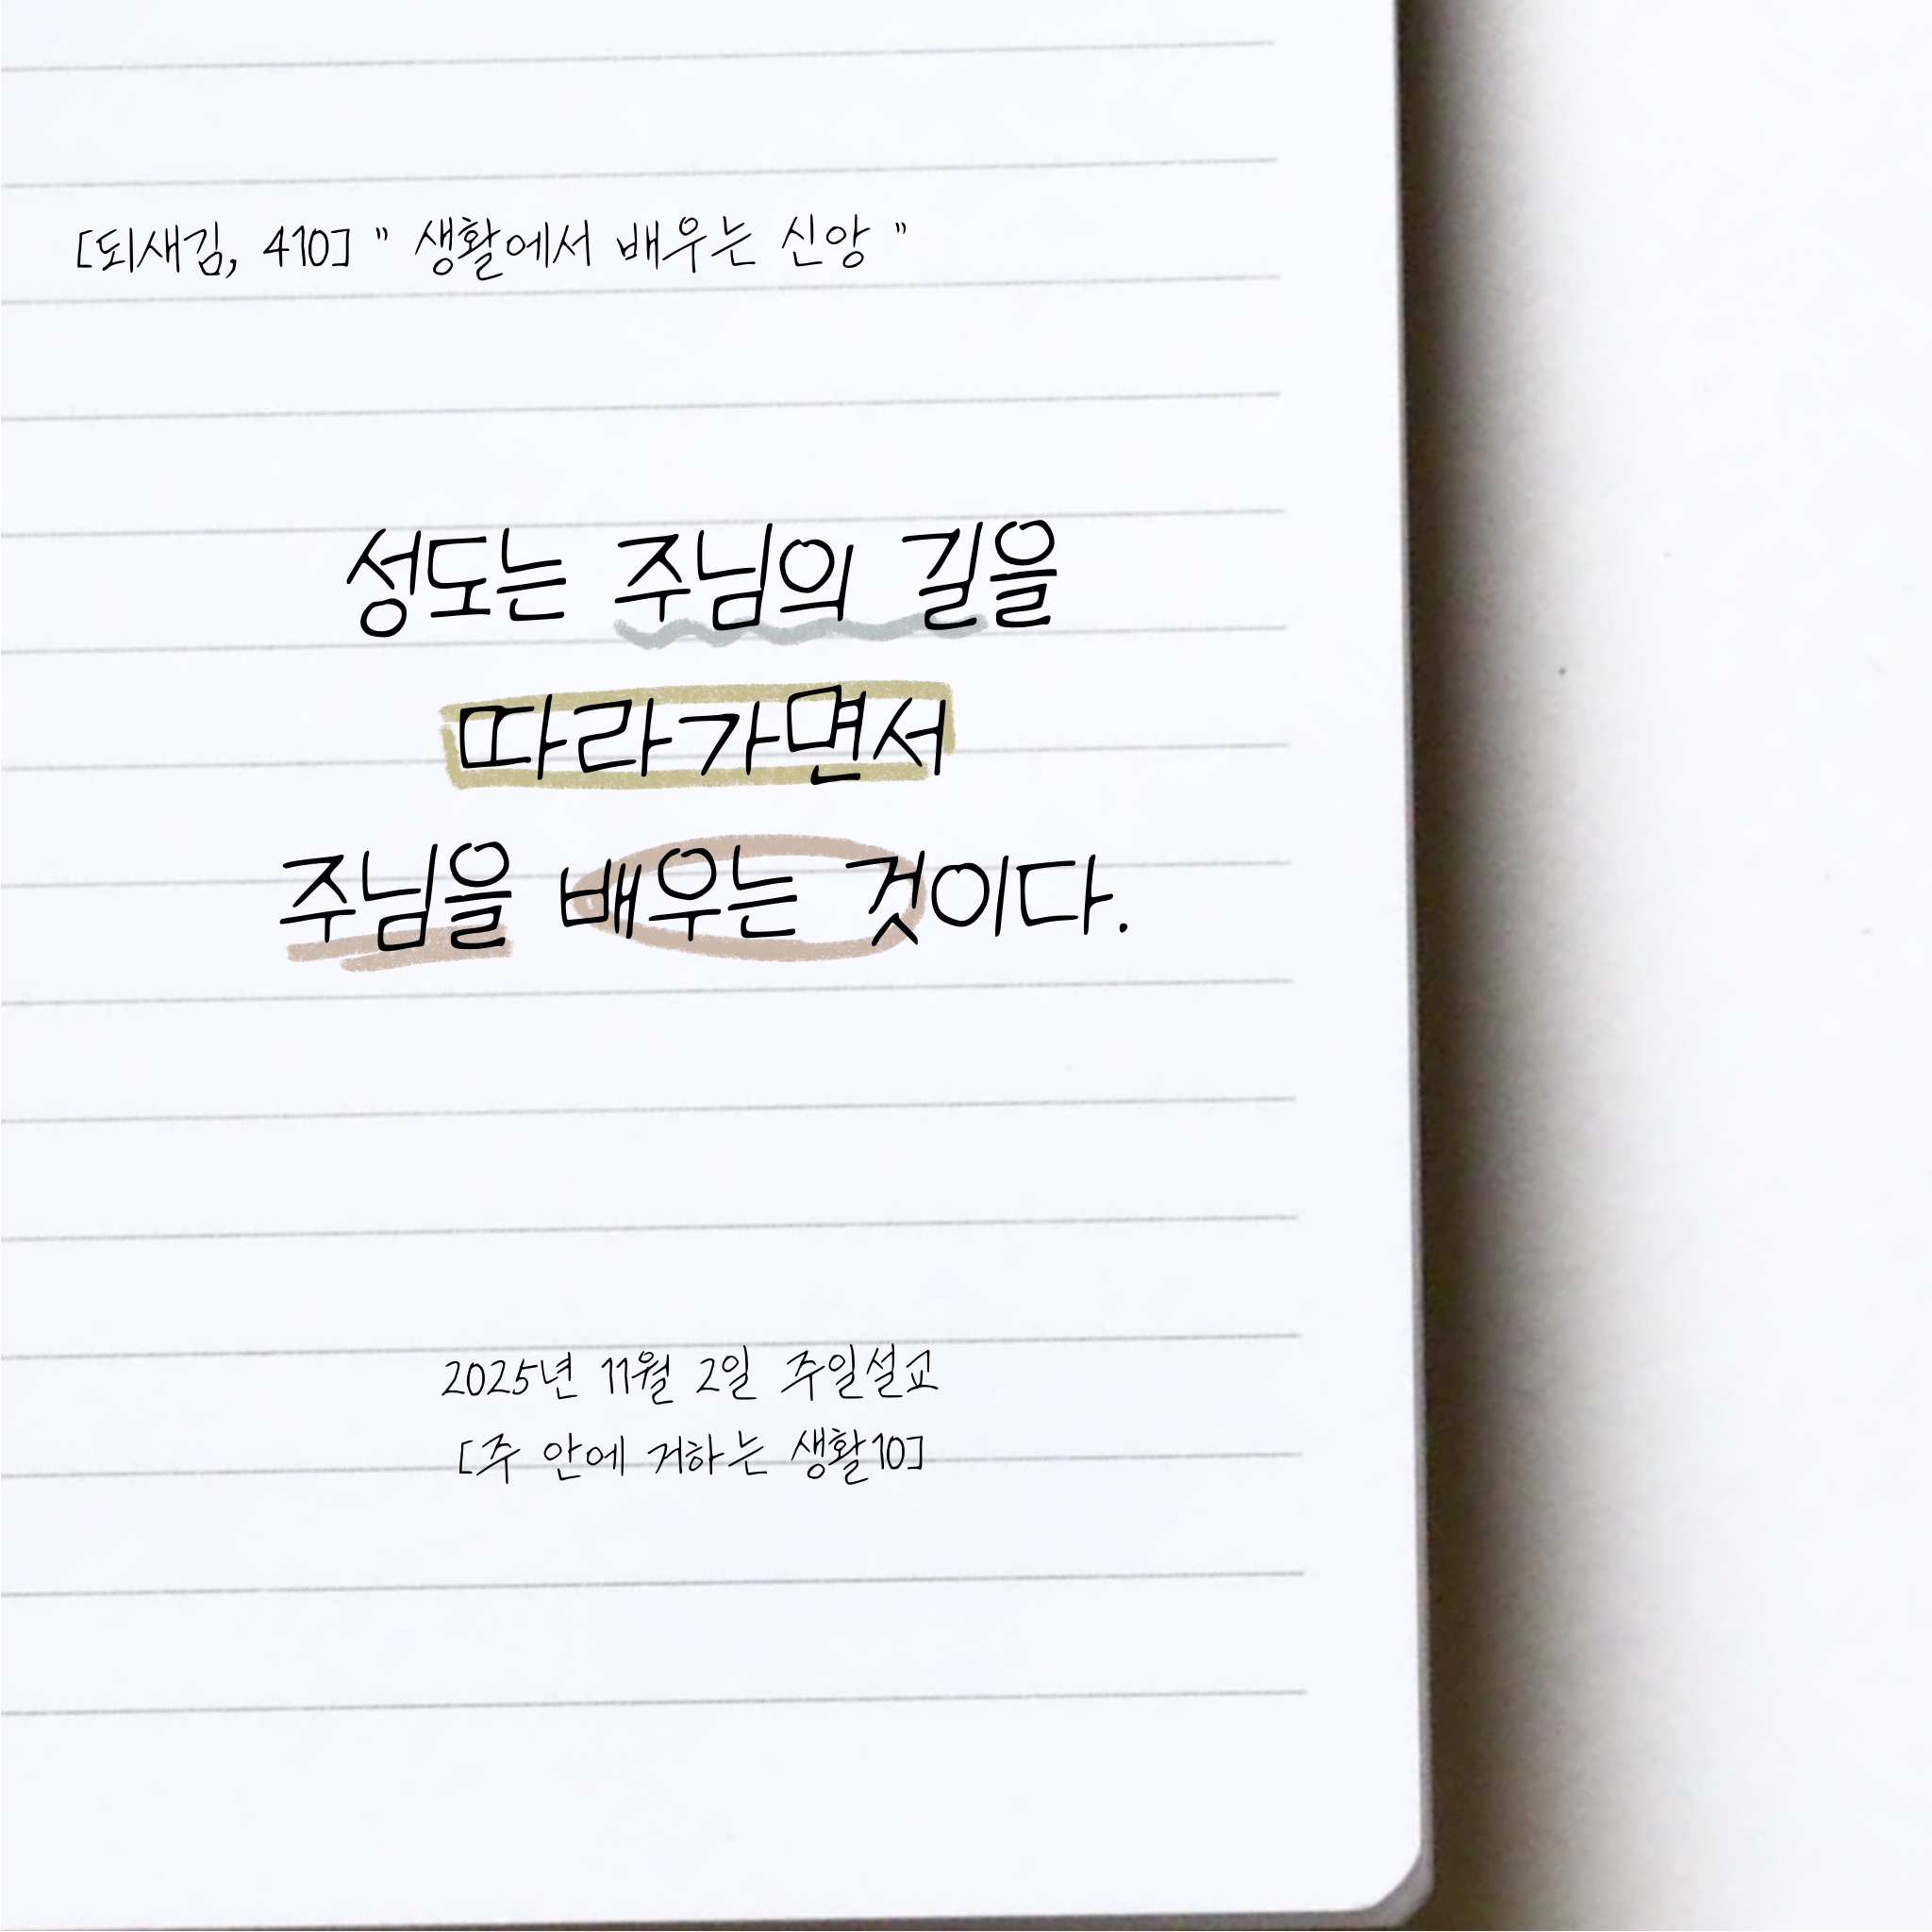 [되새김, 410] " 생활에서 배우는 신앙 "
성도는 주님의 길을
따라가면서
주님을 배우는 것이다.
2025년 11월 2일 주일설교
[주 안에 거하는 생활10]